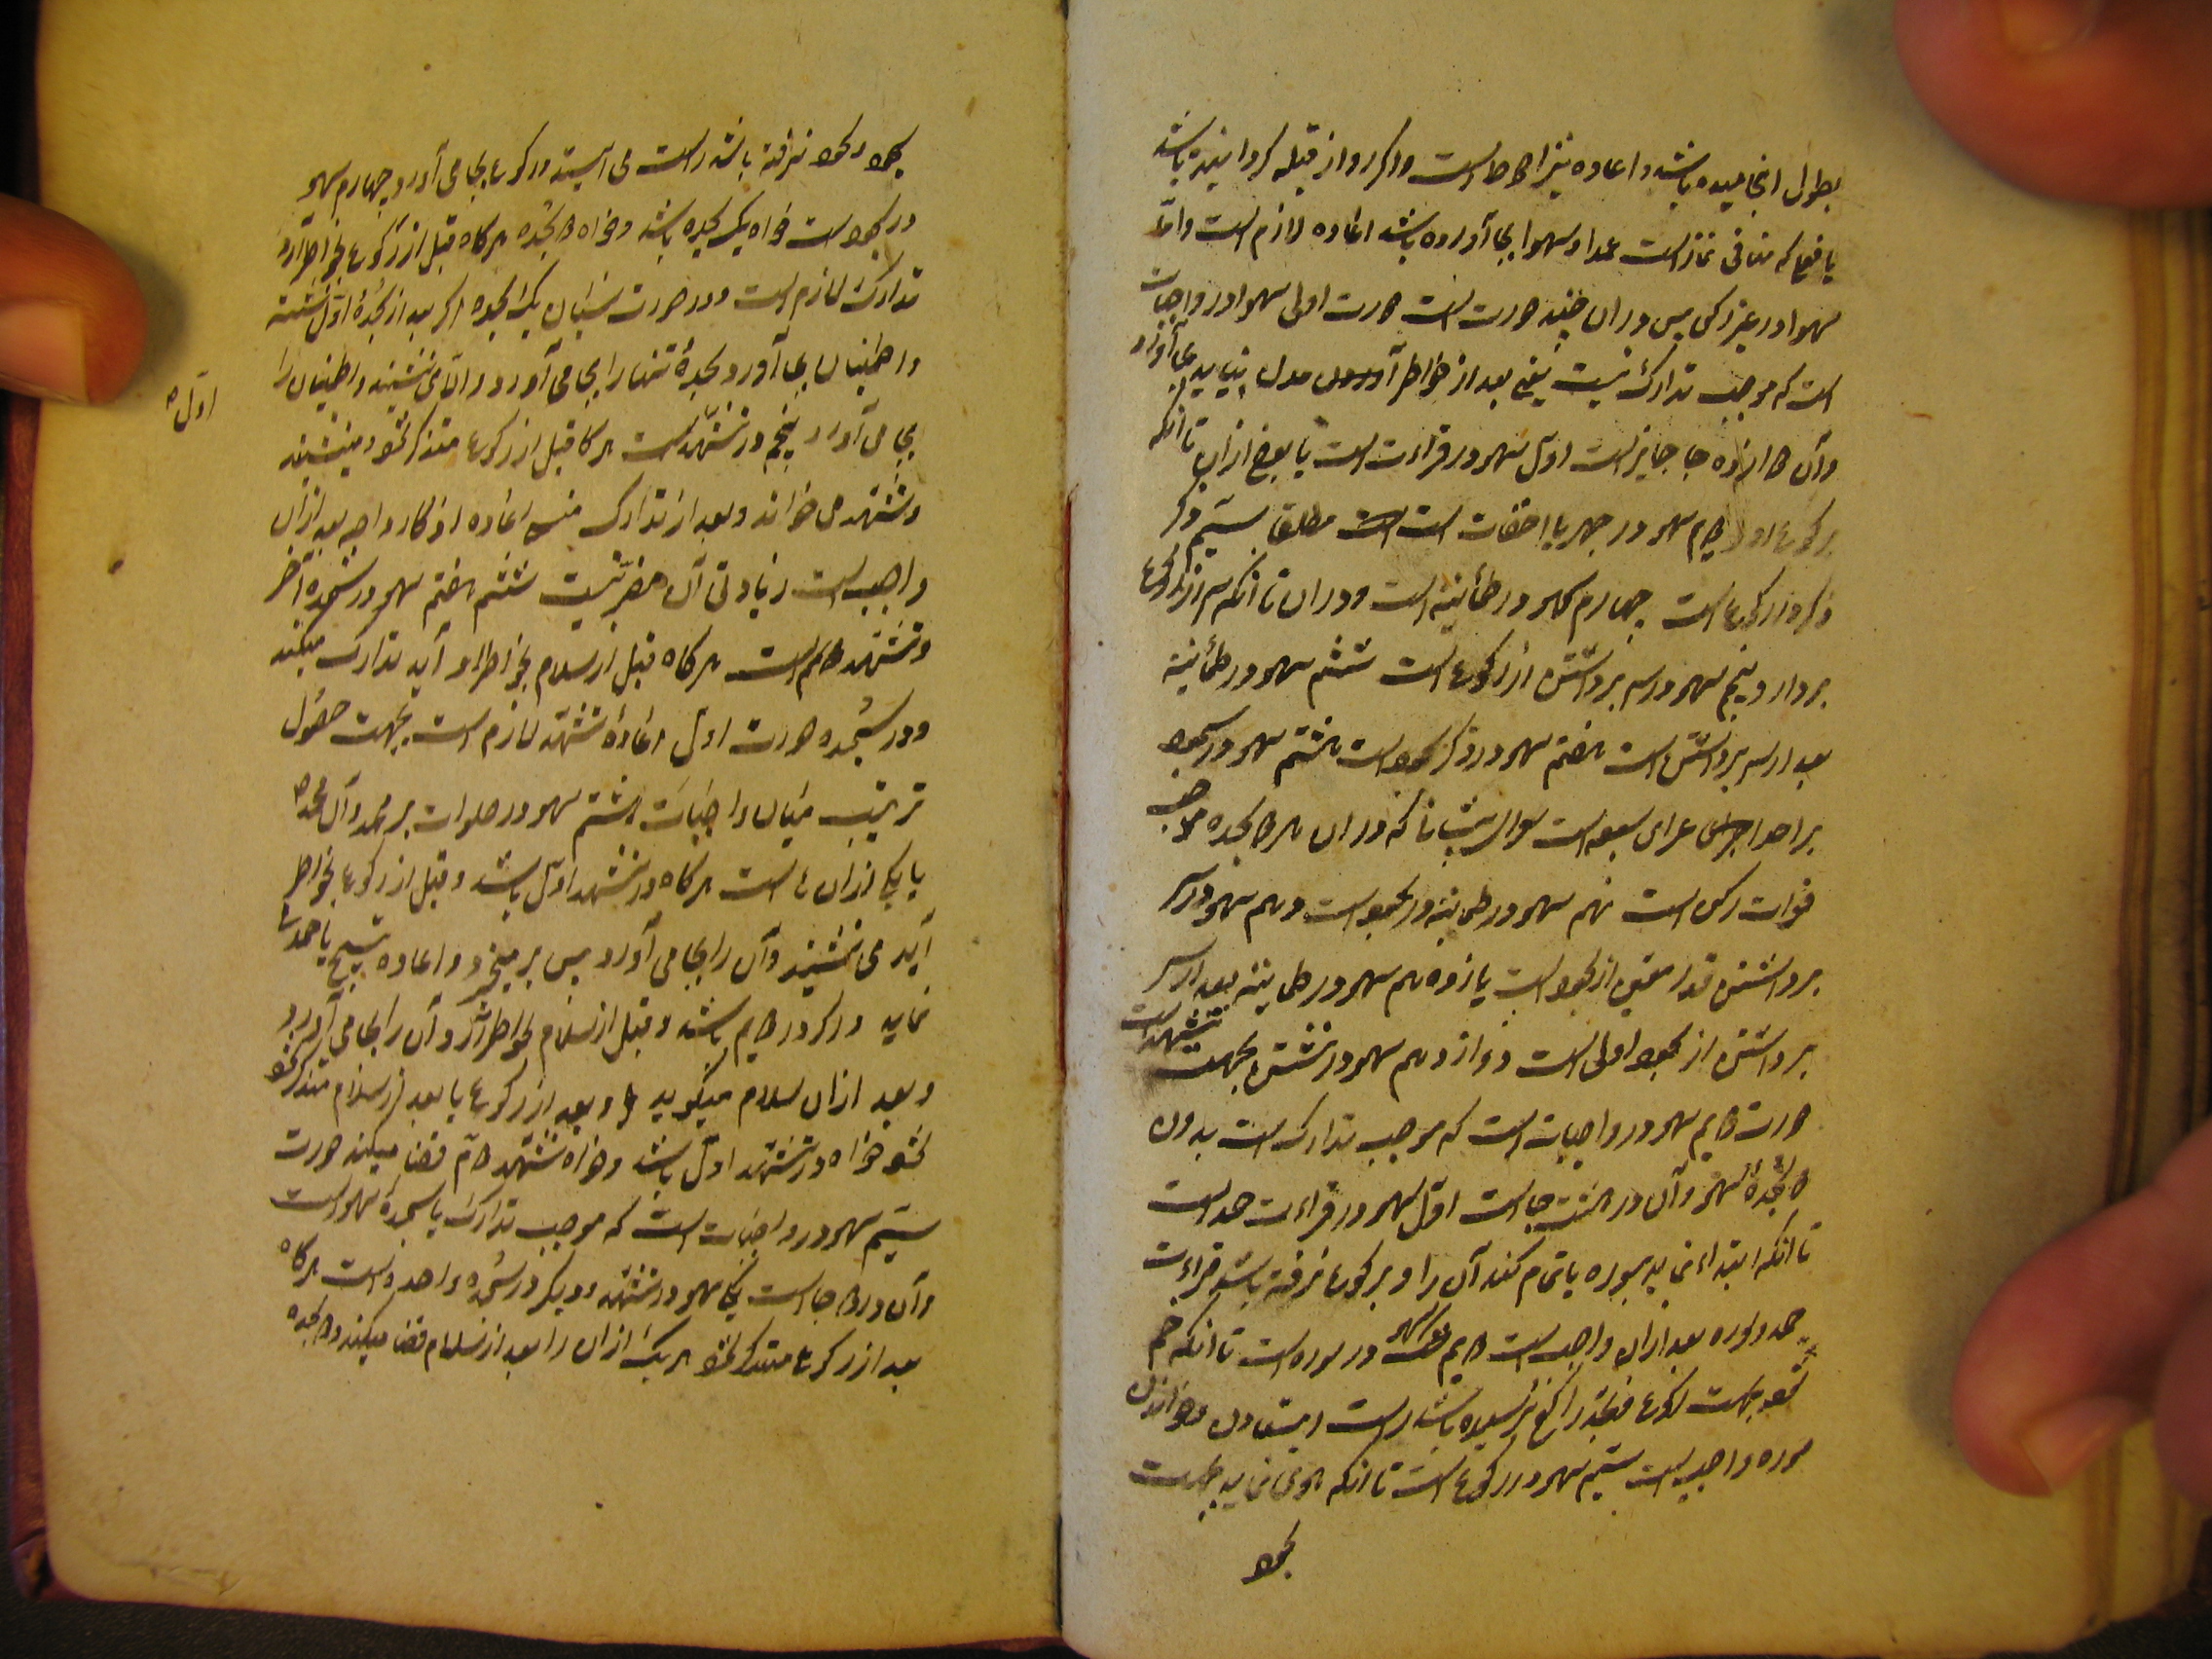 بطول انجامیده باشد و اعاده نیز احوط است و اگر رو از قبله گردانیده باشد
یا فعلی که منافی نماز است عمدا و سهوا بجا آورده باشد اعاده لازم است و اما
سهو در غیر رکن پس در آن چند صورت است صورت اولی سهو در واجبات
است که موجب تدارک نیست یعنی بعد از بخاطر آوردن بجا آورد
و آن دوازده جا جایز است اول سهو در قراءت است یا بعض از آن تا آنکه
برکوع رود دویم سهو در جهر یا اخفات است مطلقا سیم در
ذکر در رکوع است چهارم سهو در طمأنینه است در آن تا آنکه سر از رکوع
بردارد پنجم سهو در سر برداشتن از رکوع است ششم سهو در طمأنینه
بعد از سر برداشتن است هفتم سهو در ذکر سجود است هشتم سهو در سجود
بر احد اجزای اعضای سبعه است سوای پیشانی که در آن هر دو سجده موجب
فوات رکن است نهم سهو در طمأنینه در سجود است دهم سهو در سر
برداشتن قدر معین از سجود است یازدهم سهو در طمأنینه بعد از سر
برداشتن از سجود اولی است دوازدهم سهو در نشستن بجهت تشهد است
صورت دویم سهو در واجبات است که موجب تدارک است بدون
دو سجدهٔ سهو و آن در هشت جا است اول سهو در قراءت حمد است
تا آنکه ابتداء نماید بسوره یا تمام کند آن را و برکوع نرفته باشد قراءت
حمد و سوره بعد از آن واجب است دویم سهو در سوره است تا آنکه خم
شود بجهت رکوع و بحد راکع نرسیده باشد راست ایستادن و خواندن
سوره واجب است سیم سهو در رکوع است تا آنکه هوی نماید بجهت
سجود
سجود و سجود نرفته باشد راست می ایستد و رکوع بجا می آورد چهارم سهو
در سجود است خواه یک سجده باشد و خواه دو سجده هر گاه قبل از رکوع بخاطر آرد
تدارک لازم است و در صورت نسیان یک سجده اگر بعد از سجدهٔ اول نشسته
و اطمینان بجا آورد سجدهٔ تنها را بجا می آورد و الا می نشیند و اطمینان را
بجا می آورد پنجم در تشهد است هر گاه قبل از رکوع متذکر شود می نشیند
اول
و تشهد می خواند و بعد از تدارک منسی اعاده اذکار واجبه بعد از آن
واجب است زیادتی آن مضر نیست ششم هفتم سهو در سجده آخر
و تشهد دویم است هر گاه قبل از سلام بخاطر او آید تدارک میکند
و در سجده صورت اول اعادهٔ تشهد لازم است بجهت حصول
ترتیب میان واجبات هشتم سهو در صلوات بر محمد و آل محمد
یا یکی از آن ها است هر گاه در تشهد اول باشد و قبل از رکوع بخاطر
آید می نشیند و آن را بجا می آورد پس بر میخیزد و اعاده تسبیح یا حمد
نماید و اگر در دویم باشد و قبل از سلام بخاطر آرد و آن را بجا می آورد
و بعد از آن سلام میگوید و بعد از رکوع یا بعد از سلام متذکر شود
شود خواه در تشهد اول باشد و خواه تشهد دویم قضا میکند صورت
سیم سهو در واجبات است که موجب تدارک با سجدهٔ سهو است
و آن در دو جا است یکی سهو در تشهد و دیگر در سجدهٔ واحده است هر گاه
بعد از رکوع متذکر شود هر یک از آن را بعد از سلام قضا میکند و دو سجده